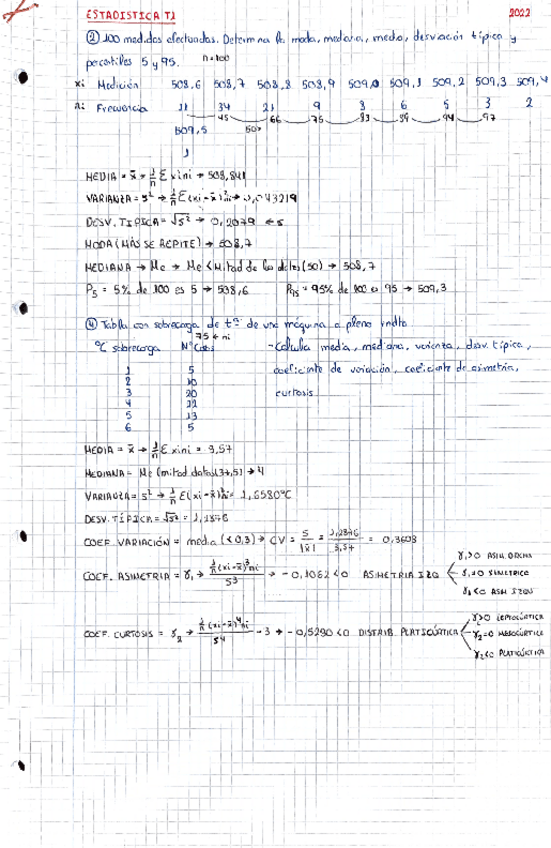 ESTADISTICA T1 2022
② 100 medidas efectuadas. Determina la moda, mediana, media, desviación típica y
percentiles 5 y 95. n=100
xi Medición 508,6 508,7 508,8 508,9 509,0 509,1 509,2 509,3 509,4
ni Frecuencia 11 34 21 9 8 6 5 3 2
45 66 75 83 89 94 97
509,5
1
MEDIA = x̄ = 1/n Σ xini → 508,841
VARIANZA = S² → 1/n Σ(xi-x̄)²ni → 0,043219
DESV. TIPICA = √S² → 0,2079 ← S
MODA (MÁS SE REPITE) → 508,7
MEDIANA → Me → Me < Mitad de los datos (50) → 508,7
P5 = 5% de 100 es 5 → 508,6 P95 = 95% de 100 es 95 → 509,3
④ Tabla con sobrecarga de tª de una máquina a pleno rndto.
75 ← ni
ºC sobrecarga NºCasos - Calcula media, mediana, varianza, desv. típica,
1 5 coeficiente de variación, coeficiente de asimetría,
2 10
3 20 curtosis
4 22
5 13
6 5
MEDIA = x̄ → 1/n Σ xini = 3,57
MEDIANA = Me (mitad datos) (37,5) → 4
VARIANZA = S² → 1/n Σ(xi-x̄)²ni = 1,6580ºC
DESV. TÍPICA = √S² = 1,2876
COEF. VARIACIÓN = media (<0,3) → CV = S/|x̄| = 1,2876/3,57 = 0,3603
COEF. ASIMETRIA = γ1 → 1/n(xi-x̄)³ni/S³ → -0,1062 <0 ASIMETRIA IZQ
γ1>0 ASIM. DRCHA
γ1=0 SIMETRICO
γ1<0 ASIM IZQU
COEF. CURTOSIS = γ2 → 1/n(xi-x̄)⁴ni/S⁴ - 3 → -0,5290 <0 DISTRIB. PLATICÚRTICA
γ2>0 LEPTOCÚRTICA
γ2=0 MESOCÚRTICA
γ2<0 PLATICÚRTICA